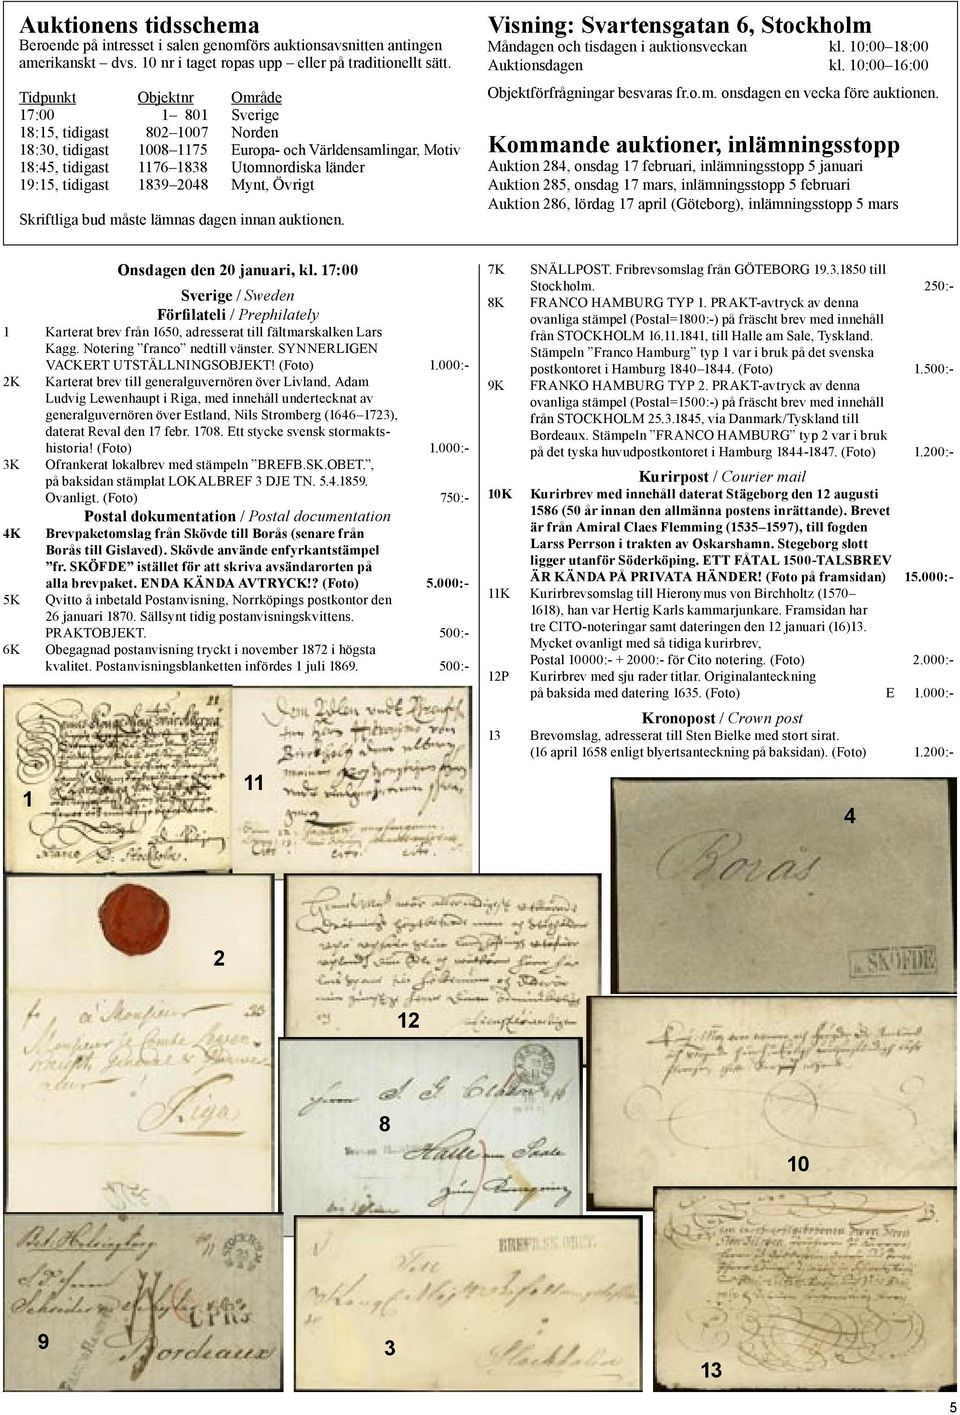 Auktionens tidsschema
Beroende på intresset i salen genomförs auktionsavsnitten antingen
amerikanskt dvs. 10 nr i taget ropas upp eller på traditionellt sätt.
Tidpunkt Objektnr Område
17:00 1 801 Sverige
18:15, tidigast 802 1007 Norden
18:30, tidigast 1008 1175 Europa- och Världensamlingar, Motiv
18:45, tidigast 1176 1838 Utomnordiska länder
19:15, tidigast 1839 2048 Mynt, Övrigt
Skriftliga bud måste lämnas dagen innan auktionen.
Visning: Svartensgatan 6, Stockholm
Måndagen och tisdagen i auktionsveckan kl. 10:00 18:00
Auktionsdagen kl. 10:00 16:00
Objektförfrågningar besvaras fr.o.m. onsdagen en vecka före auktionen.
Kommande auktioner, inlämningsstopp
Auktion 284, onsdag 17 februari, inlämningsstopp 5 januari
Auktion 285, onsdag 17 mars, inlämningsstopp 5 februari
Auktion 286, lördag 17 april (Göteborg), inlämningsstopp 5 mars
Onsdagen den 20 januari, kl. 17:00
Sverige / Sweden
Förfilateli / Prephilately
1 Karterat brev från 1650, adresserat till fältmarskalken Lars
Kagg. Notering ”franco” nedtill vänster. SYNNERLIGEN
VACKERT UTSTÄLLNINGSOBJEKT! (Foto) 1.000:-
2K Karterat brev till generalguvernören över Livland, Adam
Ludvig Lewenhaupt i Riga, med innehåll undertecknat av
generalguvernören över Estland, Nils Stromberg (1646–1723),
daterat Reval den 17 febr. 1708. Ett stycke svensk stormakts-
historia! (Foto) 1.000:-
3K Ofrankerat lokalbrev med stämpeln ”BREFB.SK.OBET.”,
på baksidan stämplat LOKALBREF 3 DJE TN. 5.4.1859.
Ovanligt. (Foto) 750:-
Postal dokumentation / Postal documentation
4K Brevpaketomslag från Skövde till Borås (senare från
Borås till Gislaved). Skövde använde enfyrkantstämpel
”fr. SKÖFDE” istället för att skriva avsändarorten på
alla brevpaket. ENDA KÄNDA AVTRYCK!? (Foto) 5.000:-
5K Qvitto å inbetald Postanvisning, Norrköpings postkontor den
26 januari 1870. Sällsynt tidig postanvisningskvittens.
PRAKTOBJEKT. 500:-
6K Obegagnad postanvisning tryckt i november 1872 i högsta
kvalitet. Postanvisningsblanketten infördes 1 juli 1869. 500:-
7K SNÄLLPOST. Fribrevsomslag från GÖTEBORG 19.3.1850 till
Stockholm. 250:-
8K FRANCO HAMBURG TYP 1. PRAKT-avtryck av denna
ovanliga stämpel (Postal=1800:-) på fräscht brev med innehåll
från STOCKHOLM 16.11.1841, till Halle am Sale, Tyskland.
Stämpeln ”Franco Hamburg” typ 1 var i bruk på det svenska
postkontoret i Hamburg 1840–1844. (Foto) 1.500:-
9K FRANKO HAMBURG TYP 2. PRAKT-avtryck av denna
ovanliga stämpel (Postal=1500:-) på fräscht brev med innehåll
från STOCKHOLM 25.3.1845, via Danmark/Tyskland till
Bordeaux. Stämpeln ”FRANCO HAMBURG” typ 2 var i bruk
på det tyska huvudpostkontoret i Hamburg 1844-1847. (Foto) 1.200:-
Kurirpost / Courier mail
10K Kurirbrev med innehåll daterat Stägeborg den 12 augusti
1586 (50 år innan den allmänna postens inrättande). Brevet
är från Amiral Claes Flemming (1535–1597), till fogden
Larss Perrson i trakten av Oskarshamn. Stegeborg slott
ligger utanför Söderköping. ETT FÅTAL 1500-TALSBREV
ÄR KÄNDA PÅ PRIVATA HÄNDER! (Foto på framsidan) 15.000:-
11K Kurirbrevsomslag till Hieronymus von Birchholtz (1570–
1618), han var Hertig Karls kammarjunkare. Framsidan har
tre CITO-noteringar samt dateringen den 12 januari (16)13.
Mycket ovanligt med så tidiga kurirbrev,
Postal 10000:- + 2000:- för Cito notering. (Foto) 2.000:-
12P Kurirbrev med sju rader titlar. Originalanteckning
på baksida med datering 1635. (Foto) E 1.000:-
Kronopost / Crown post
13 Brevomslag, adresserat till Sten Bielke med stort sirat.
(16 april 1658 enligt blyertsanteckning på baksidan). (Foto) 1.200:-
1
11
4
Borås
fr. SKÖFDE
2
12
à Monsieur
Riga
8
Halle am Saale
10
Bordeaux
9
BREFB.SK.OBET.
Stockholm
3
13
5